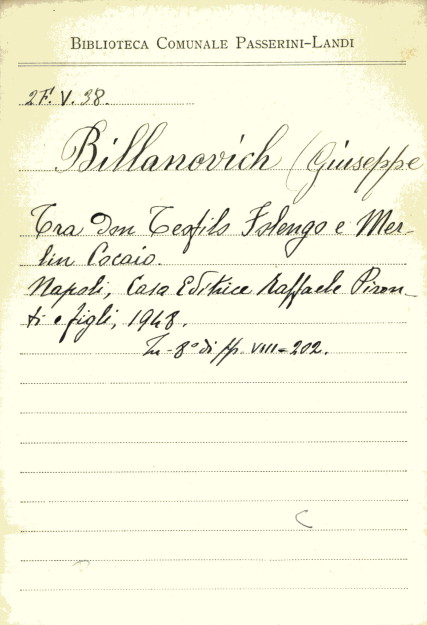 BIBLIOTECA COMUNALE PASSERINI-LANDI
2F. V. 38.
Billanovich (Giuseppe
Tra don Teofilo Folengo e Mer-
lin Cocaio.
Napoli, Casa Editrice Raffaele Piron-
ti e figli, 1948.
In-8° di pp. VIII-202.